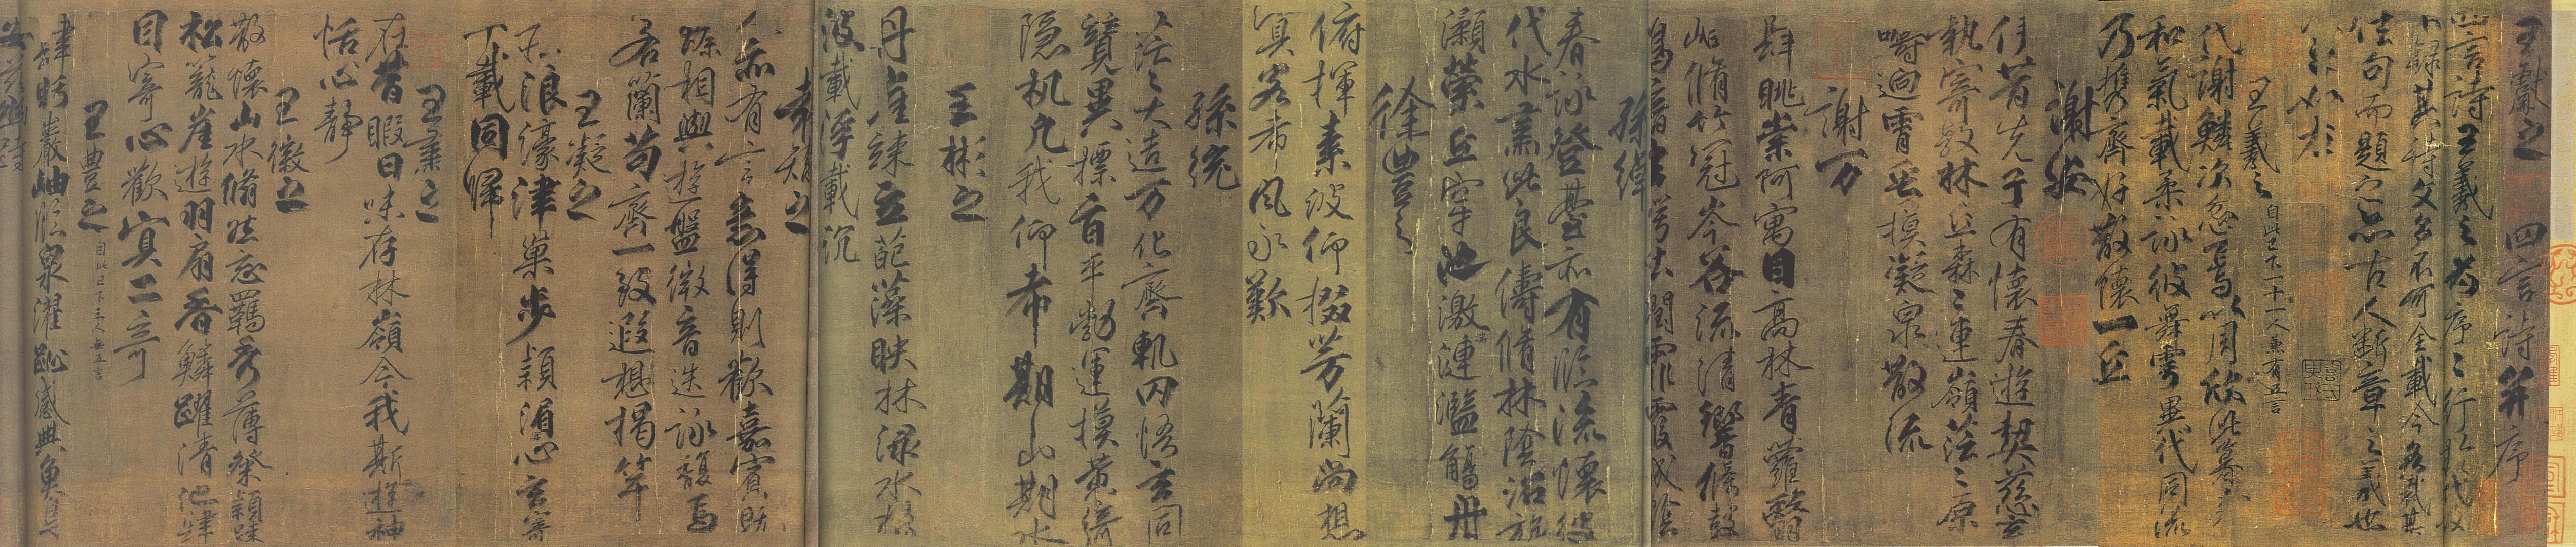 王獻之四言詩并序
四言詩王羲之為序序行於代故
不錄其詩文多不可全載今各裁其
佳句而題之亦古人斷章之義也
王羲之 自此已下十一人兼有五言
代謝鱗次忽焉以周欣此暮春
和氣載柔詠彼舞雩異代同流
乃攜齊好散懷一丘
謝安
伊昔先子有懷春遊契茲言
執寄敖林丘森森連嶺茫茫原
疇迥霄垂模凝泉散流
謝万
肆眺崇阿寓目高林青蘿翳
岫脩竹冠岑谷流清響條鼓
鳴音玄崿吐潤霏霧成陰
孫綽
春詠登臺亦有臨流懷彼
伐木肅此良儔脩林陰沼旋
瀨縈丘穿池激湍漣濫觴舟
徐豊之
俯揮素波仰掇芳蘭尚想
冥客希風永歎
孫統
茫茫大造万化齊軌罔悟玄同
競異摽旨平勃運模黃綺
隱机凡我仰希期山期水
王彬之
丹崖竦立葩藻映林渌水揚
波載浮載沉
袁嶠之
人亦有言意得則歡嘉賓既
臻相與遊盤微音迭詠馥焉
若蘭苟齊一致遐想揭竿
王凝之
莊浪濠津巢步潁湄冥心玄寄
千載同歸
王肅之
在昔暇日味存林嶺今我斯遊神
怡心靜
王徽之
散懷山水翛然忘羈秀薄粲穎疎
松籠崖遊羽扇霄鱗躍清池歸
目寄心歡冥二奇
王豊之 自此已下三人無五言
肆盻巖岫臨泉濯趾感興魚鳥
安茲幽跱